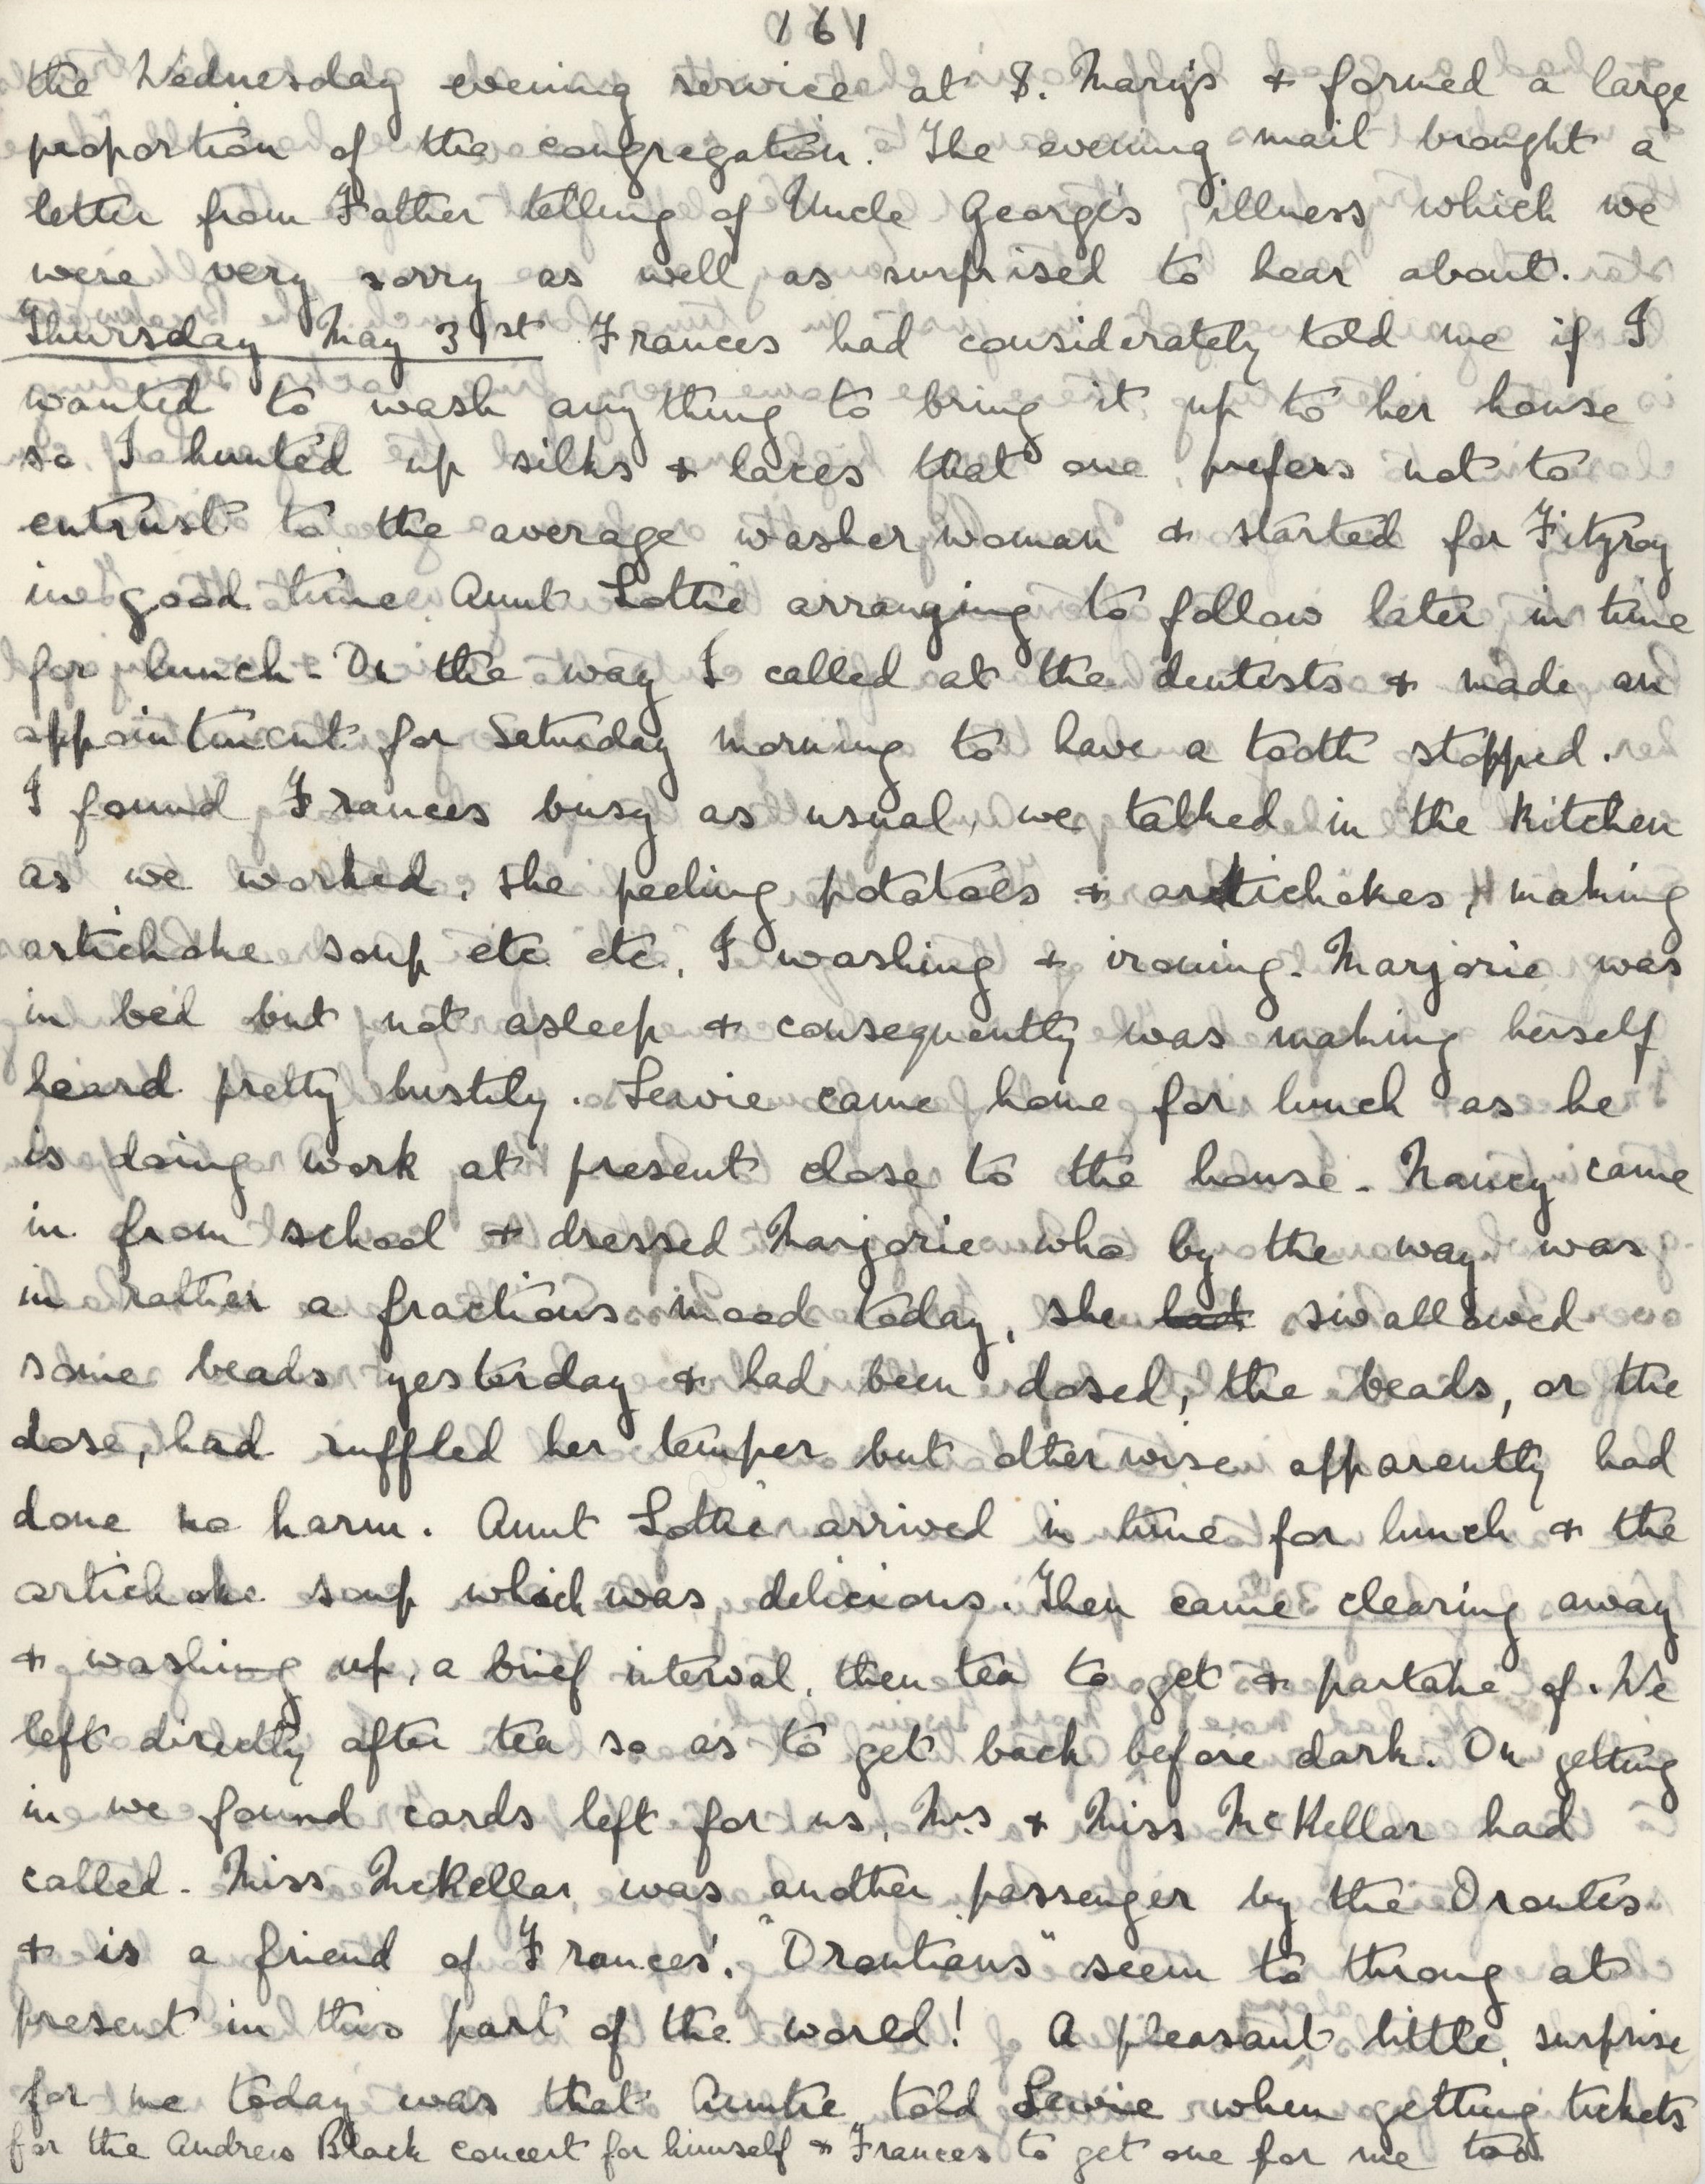 161
the Wednesday evening service at S. Mary's & formed a large
proportion of the congregation. The evening mail brought a
letter from Father telling of Uncle George's illness which we
were very sorry as well as surprised to hear about.
Thursday May 31st Frances had considerately told me if I
wanted to wash anything to bring it up to her house
so I hunted up silks & laces that one prefers not to
entrust to the average washer woman & started for Fitzroy
in good time Aunt Lottie arranging to follow later in time
for lunch - On the way I called at the dentists & made an
appointment for Saturday morning to have a tooth stopped.
I found Frances busy as usual, we talked in the kitchen
as we worked, she peeling potatoes & artichokes, making
artichoke soup etc etc, I washing & ironing. Marjorie was
in bed but not asleep & consequently was making herself
heard pretty lustily. Lewie came home for lunch as he
is doing work at present close to the house - Nancy came
in from school & dressed Marjorie who by the way was
in rather a fractious mood today, she had swallowed
some beads yesterday & had been dosed, the beads, or the
dose, had ruffled her temper but otherwise apparently had
done no harm. Aunt Lottie arrived in time for lunch & the
artichoke soup which was delicious. Then came clearing away
& washing up, a brief interval, then tea to get & partake of. We
left directly after tea so as to get back before dark. On getting
in we found cards left for us, Mrs & Miss McKellar had
called. Miss McKellar was another passenger by the Orontes
& is a friend of Frances'. "Orontians" seem to throng at
present in this part of the world! A pleasant little surprise
for me today was that Auntie told Lewie when getting tickets
for the Andrew Black concert for himself & Frances to get one for me too.